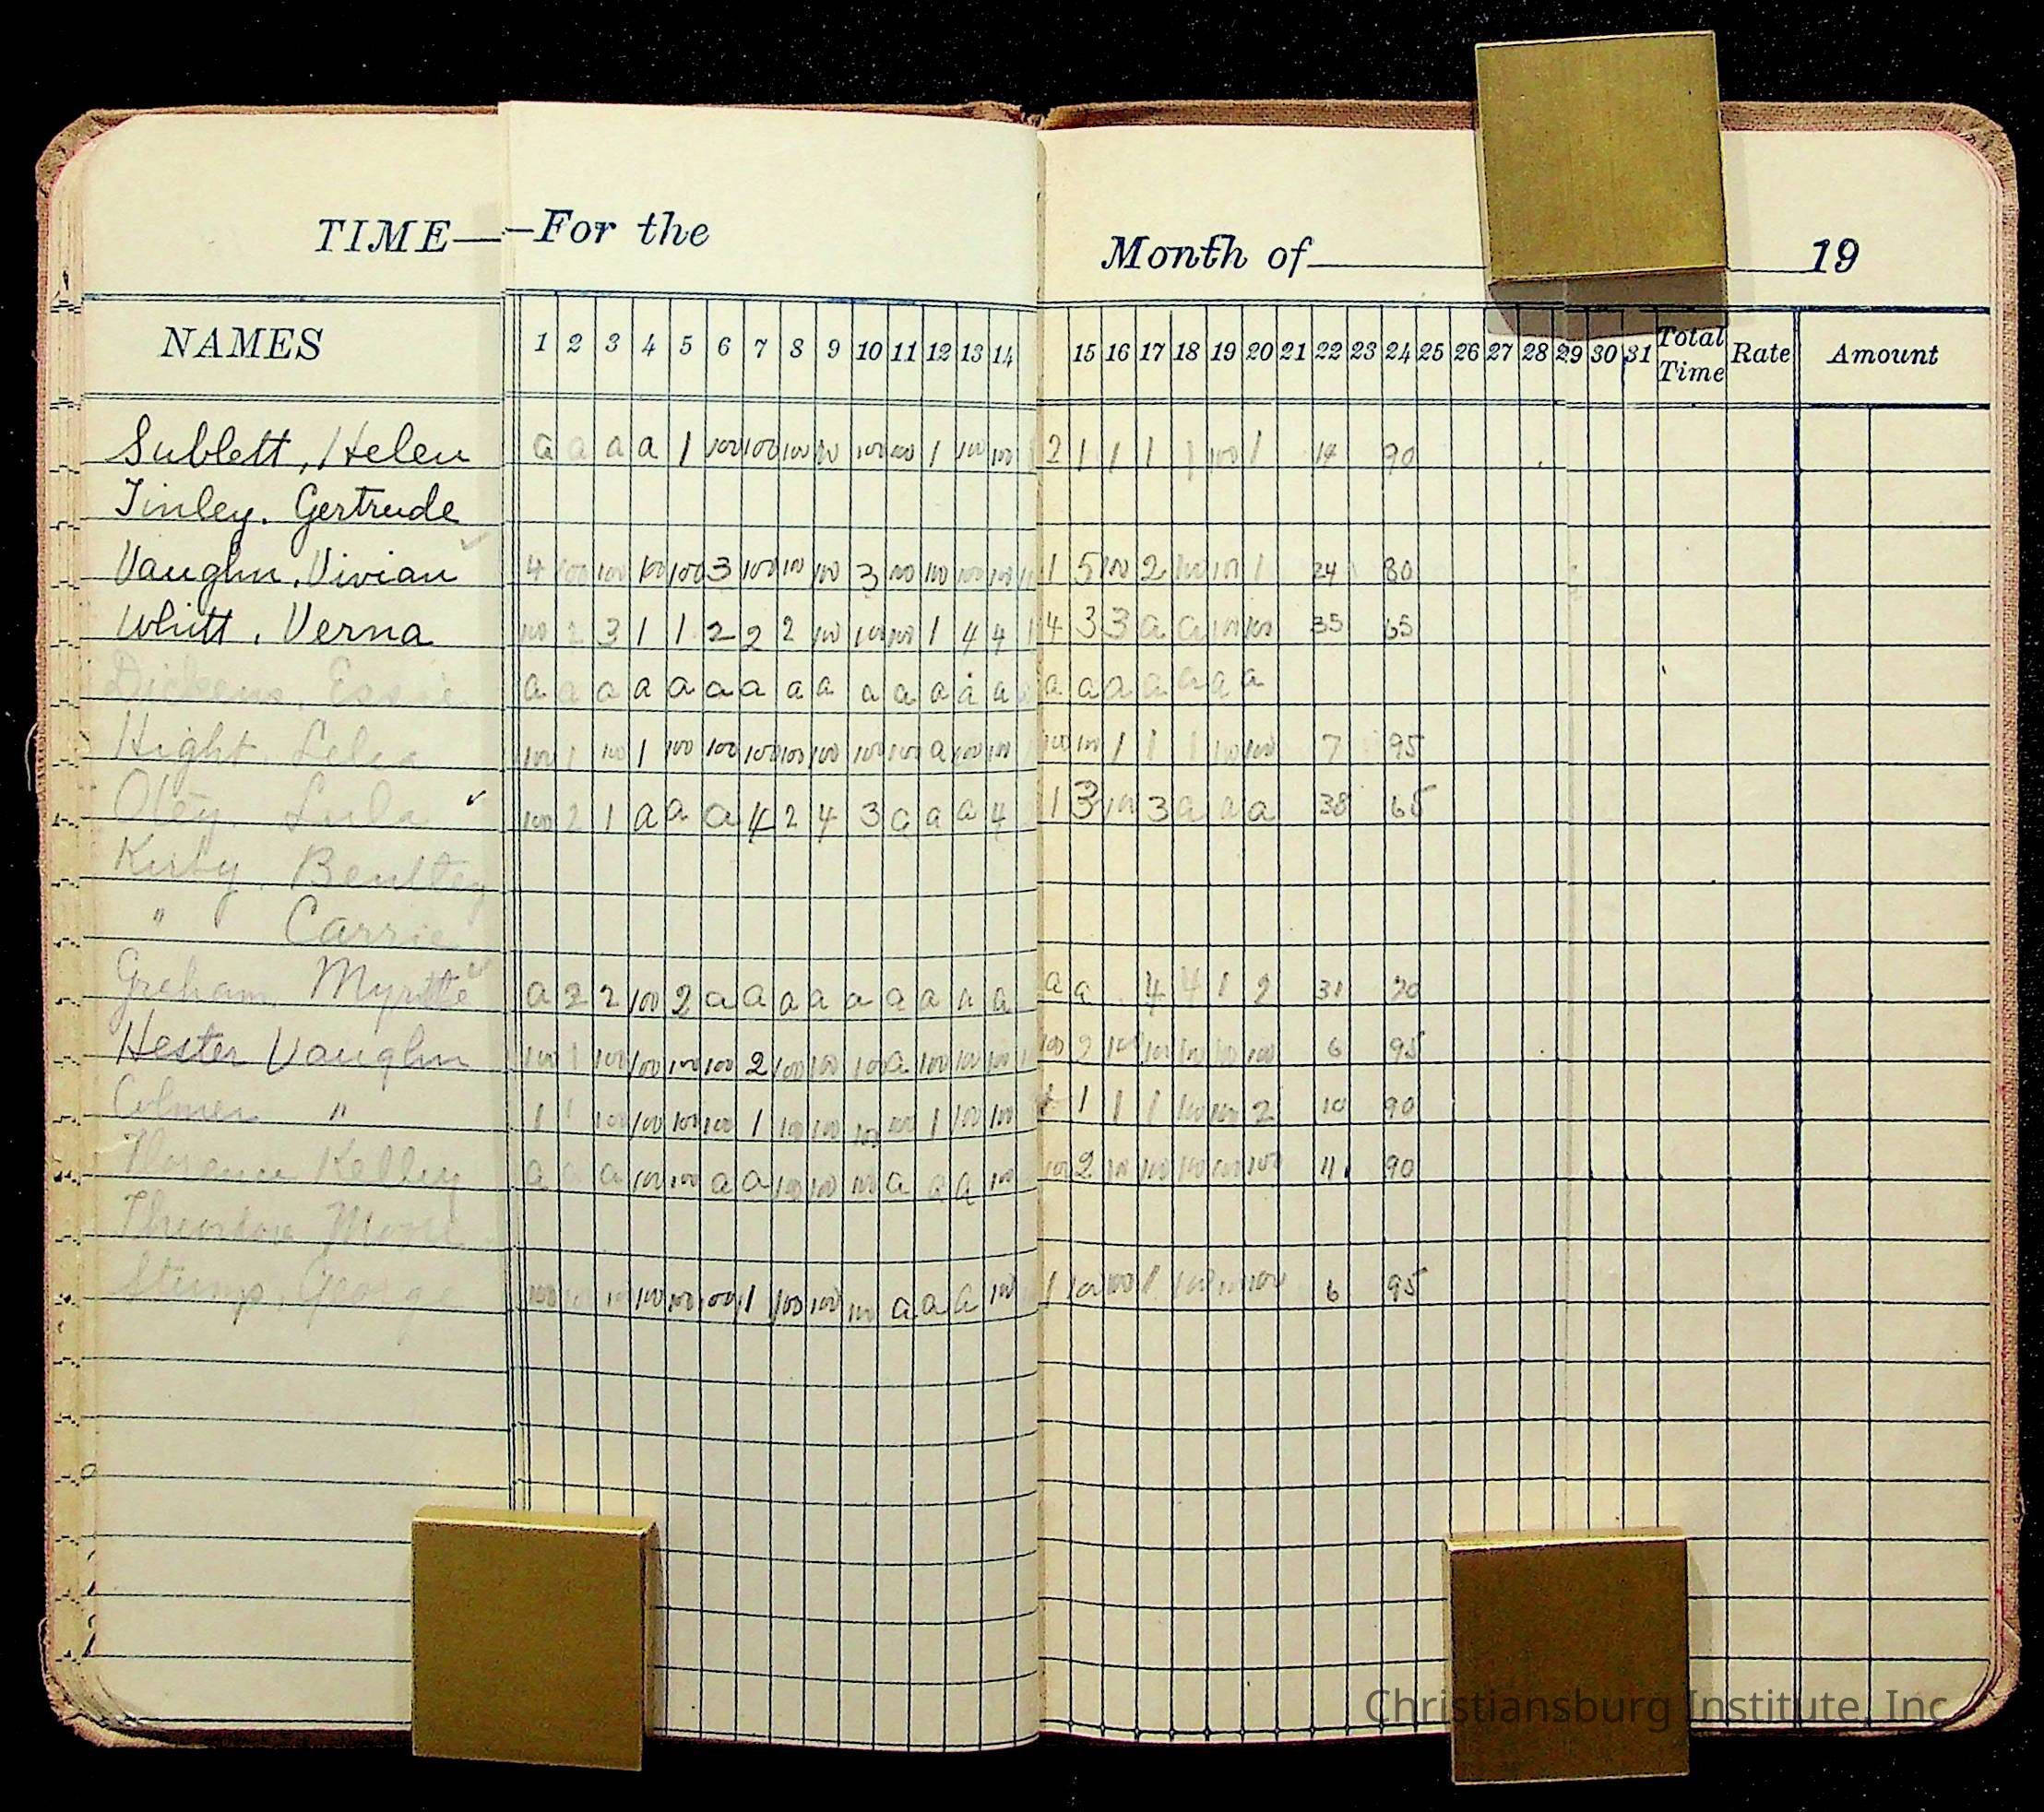 TIME— —For the Month of 19
NAMES 1 2 3 4 5 6 7 8 9 10 11 12 13 14 15 16 17 18 19 20 21 22 23 24 25 26 27 28 29 30 31 Total Time Rate Amount
Sublett, Helen a a a a 1 100 100 100 100 100 100 1 100 100 2 1 1 1 1 100 1 14 90
Tinley, Gertrude
Vaughn, Vivian 4 100 100 100 100 3 100 100 100 3 100 100 100 100 1 5 100 2 100 100 1 24 80
Whitt, Verna 100 2 3 1 1 2 2 2 100 100 100 1 4 4 4 3 3 a a 100 100 35 65
Dickens, Essie a a a a a a a a a a a a a a a a a a a a a
Hight, Lelia 100 1 100 1 100 100 100 100 100 100 100 a 100 100 100 100 1 1 1 100 100 7 95
Otey, Lula ✓ 100 2 1 a a a 4 2 4 3 a a a 4 1 3 100 3 a a a 38 65
Kirby, Benltey
" Carrie
Graham, Myrtle a 2 2 100 2 a a a a a a a a a a a 4 4 1 2 31 70
Hester Vaughn 100 1 100 100 100 100 2 100 100 100 a 100 100 100 100 2 100 100 100 100 100 6 95
" 1 1 100 100 100 100 1 100 100 100 100 1 100 100 1 1 1 100 100 2 10 90
Florence Kelley a a a 100 100 a a 100 100 100 a a a 100 100 2 100 100 100 100 100 11 90
Theodore Moore
Stump, George 100 100 100 100 100 1 100 100 100 a a a 100 1 100 100 1 100 100 100 6 95
Christiansburg Institute, Inc